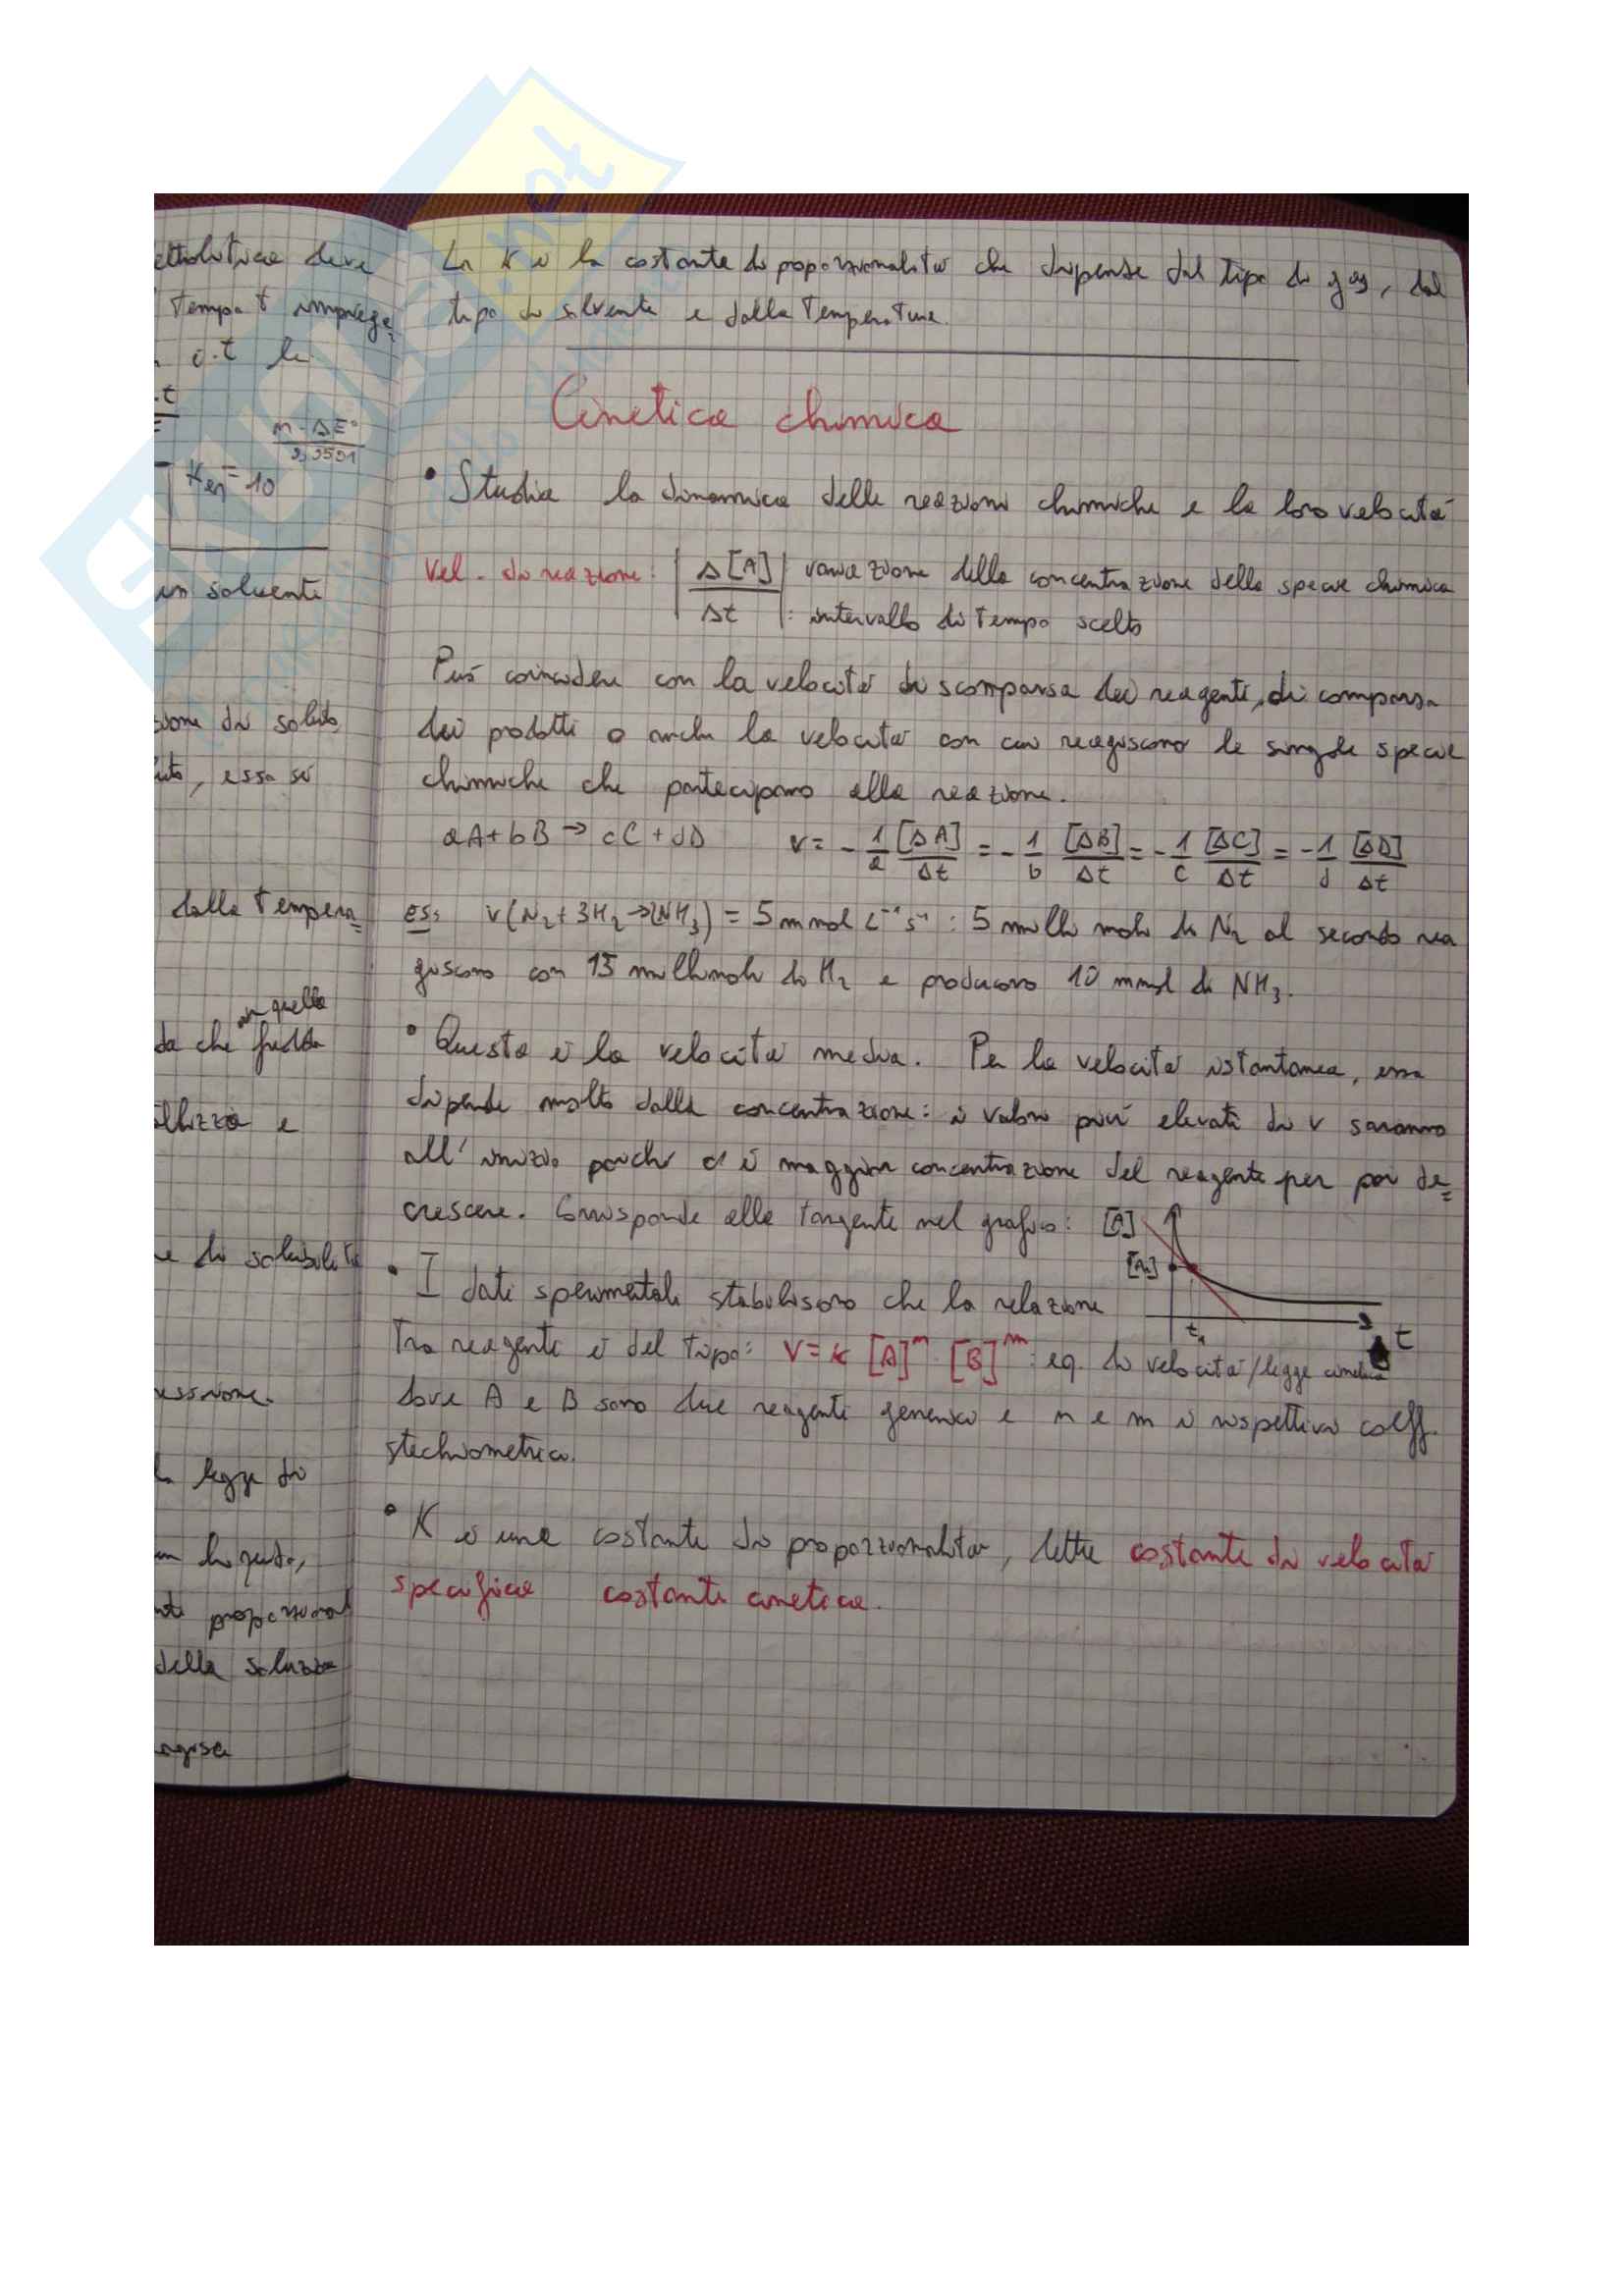 ettrolitica deve
tempo t impiega
i·t la
·t
n·ΔE°
Keq = 10
un solvente
zione di soluto
, essa si
dalla tempera=
in quella
da che fredda
e
e di solubilità
essione.
legge di
un liquido,
proporzional
della soluzio
La K è la costante di proporzionalità che dipende dal tipo di gas, dal
tipo di solvente e dalla temperatura.
Cinetica chimica
• Studia la dinamica delle reazioni chimiche e la loro velocità
Vel. di reazione: | Δ[A] | variazione della concentrazione della specie chimica
Δt |: intervallo di tempo scelto
Può coincidere con la velocità di scomparsa dei reagenti, di comparsa
dei prodotti o anche la velocità con cui reagiscono le singole specie
chimiche che partecipano alla reazione.
aA + bB → cC + dD v = - 1/a [ΔA]/Δt = - 1/b [ΔB]/Δt = - 1/c [ΔC]/Δt = - 1/d [ΔD]/Δt
es: v(N₂ + 3H₂ → 2NH₃) = 5 mmol L⁻¹ s⁻¹ : 5 milli moli di N₂ al secondo rea
giscono con 15 millimoli di H₂ e producono 10 mmol di NH₃.
• Questa è la velocità media. Per la velocità istantanea, essa
dipende molto dalla concentrazione: i valori più elevati di v saranno
all'inizio poiché c'è maggior concentrazione del reagente per poi de=
crescere. Corrisponde alla tangente nel grafico: [A]
[A₁]
t₁
t
• I dati sperimentali stabiliscono che la relazione
tra reagenti è del tipo: V = k [A]ⁿ · [B]ᵐ : eq. di velocità/legge cinetica
dove A e B sono due reagenti generici e n e m i rispettivi coeff.
stechiometrici.
• K è una costante di proporzionalità, detta costante di velocità
specifica costante cinetica.